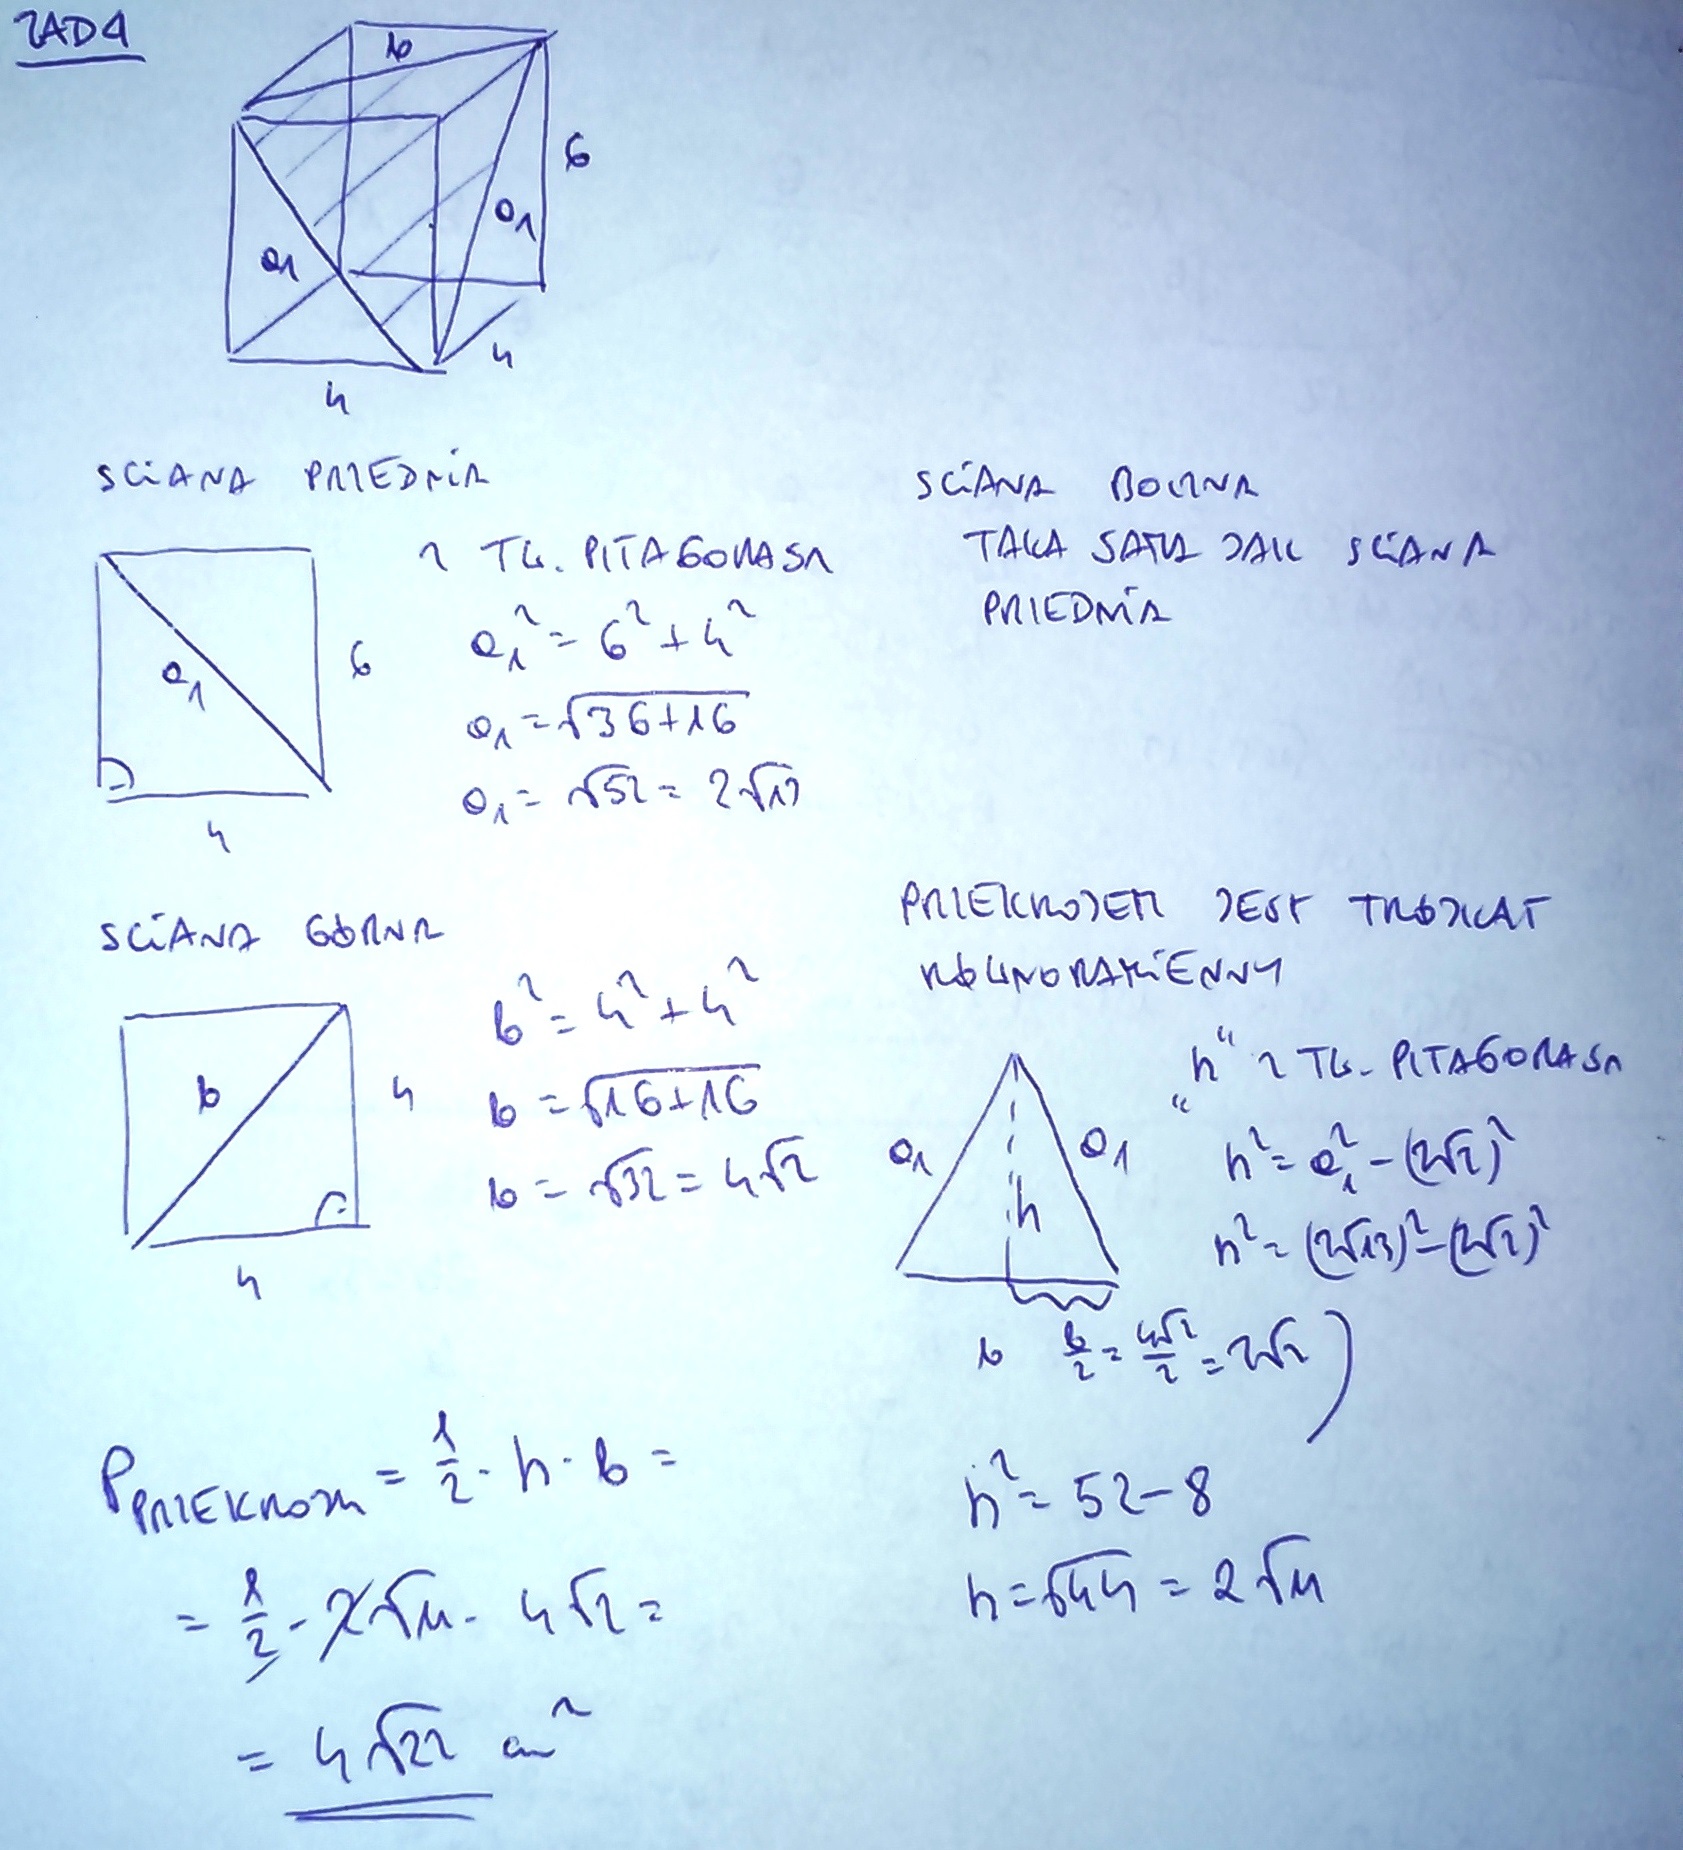 ZAD 4
b
6
a₁
a₁
4
4
ŚCIANA PRZEDNIA
Z TW. PITAGORASA
a₁² = 6² + 4²
a₁ = √36+16
a₁ = √52 = 2√13
a₁
6
4
ŚCIANA BOCZNA
TAKA SAMA JAK ŚCIANA
PRZEDNIA
ŚCIANA GÓRNA
b² = 4² + 4²
b = √16+16
b = √32 = 4√2
b
4
4
PRZEKROJEM JEST TRÓJKĄT
RÓWNORAMIENNY
„h" Z TW. PITAGORASA
h² = a₁² - (2√2)²
h² = (2√13)² - (2√2)²
a₁
a₁
h
b
b/2 = 4√2/2 = 2√2
h² = 52 - 8
h = √44 = 2√11
P PRZEKROJU = 1/2 · h · b =
= 1/2 · 2√11 · 4√2 =
= 4√22 cm²